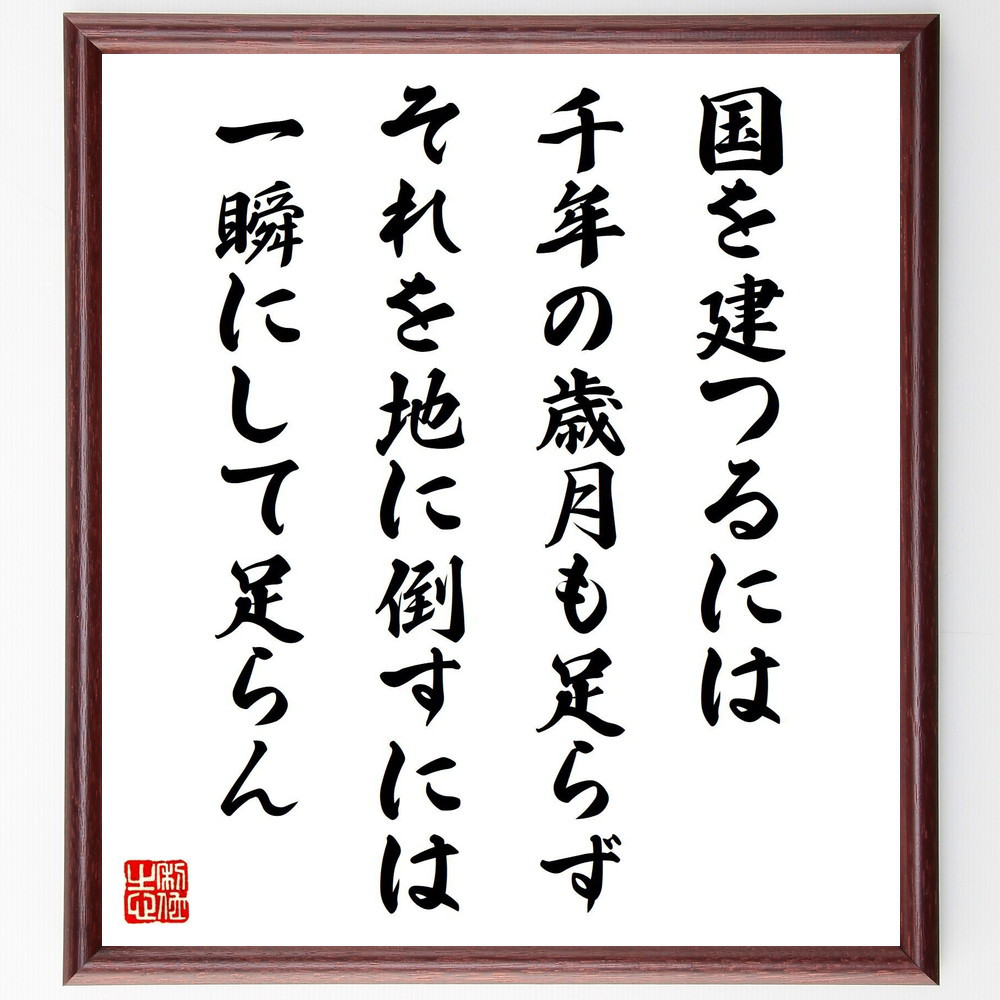 国を建つるには
千年の歳月も足らず
それを地に倒すには
一瞬にして足らん